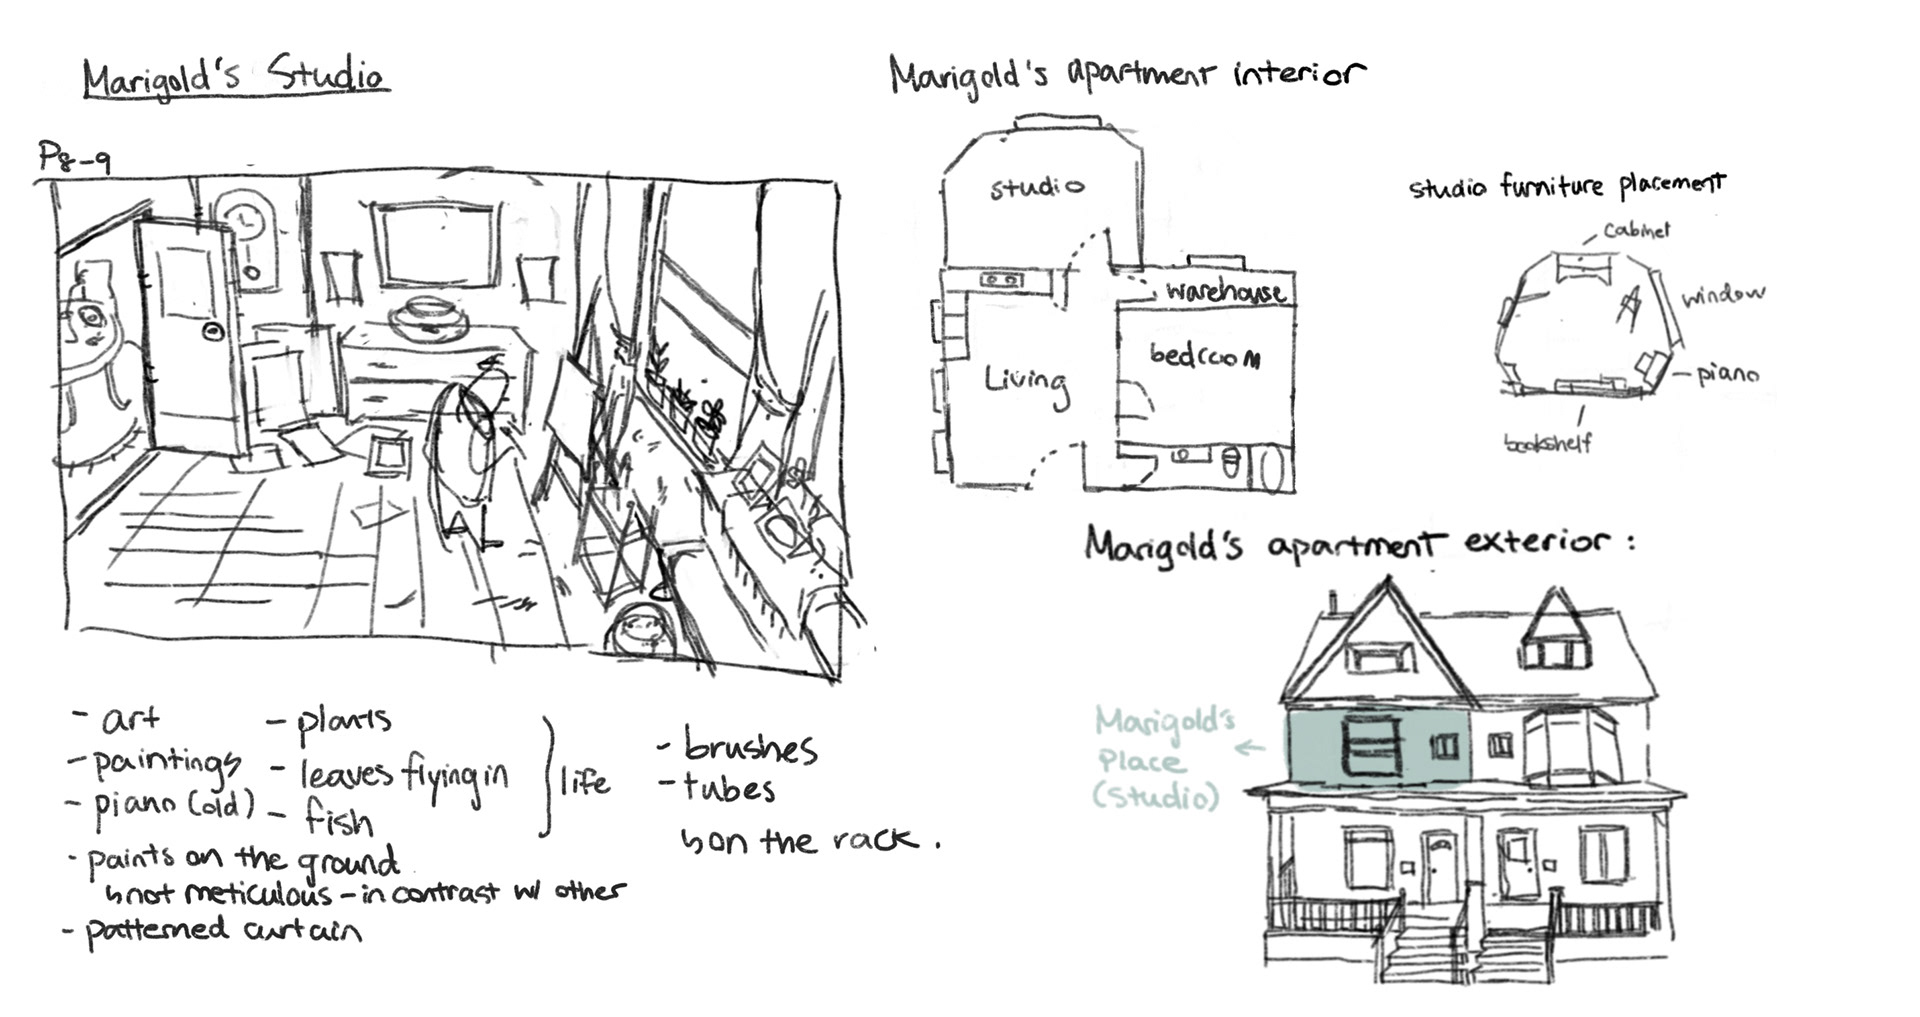 Marigold's Studio
Pg-9
- art
- paintings
- piano (old)
- plants
- leaves flying in
- fish
life
- paints on the ground
↳ not meticulous - in contrast w/ other
- patterned curtain
- brushes
- tubes
↳ on the rack.
Marigold's apartment interior
studio
warehouse
bedroom
Living
studio furniture placement
cabinet
window
piano
bookshelf
Marigold's apartment exterior:
Marigold's
Place
(Studio)